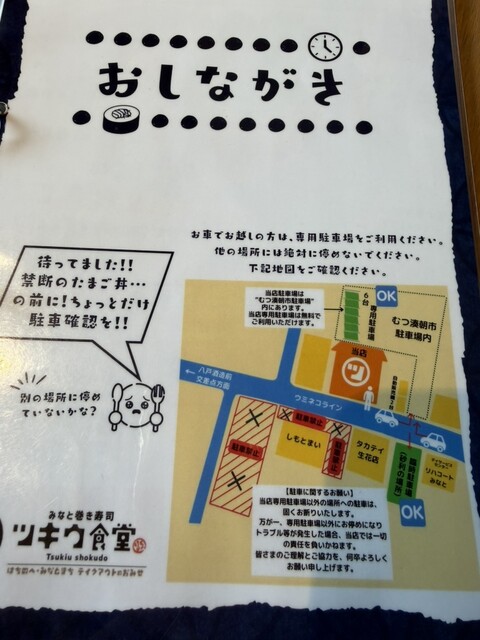 おしながき
お車でお越しの方は、専用駐車場をご利用ください。
他の場所には絶対に停めないでください。
下記地図をご確認ください。
待ってました!!
禁断のたまご丼…
の前に!ちょっとだけ
駐車確認を!!
別の場所に停め
ていないかな?
当店駐車場は
"むつ湊朝市駐車場"
内にあります。
当店専用駐車場は無料で
ご利用いただけます。
6台
専用駐車場
OK
むつ湊朝市
駐車場内
当店
ツ
八戸酒造前
交差点方面
ウミネコライン
駐車禁止
駐車禁止
駐車禁止
しもとまい
タカテイ
生花店
臨時駐車場
(砂利の場所)
OK
リハコート
みなと
【駐車に関するお願い】
当店専用駐車場以外の場所への駐車は、
固くお断りいたします。
万が一、専用駐車場以外にお停めになり
トラブル等が発生した場合、当店では一切
の責任を負いかねます。
皆さまのご理解とご協力を、何卒よろしく
お願い申し上げます。
みなと巻き寿司
ツキウ食堂
Tsukiu shokudo
はちのへ・みなとまち テイクアウトのお店